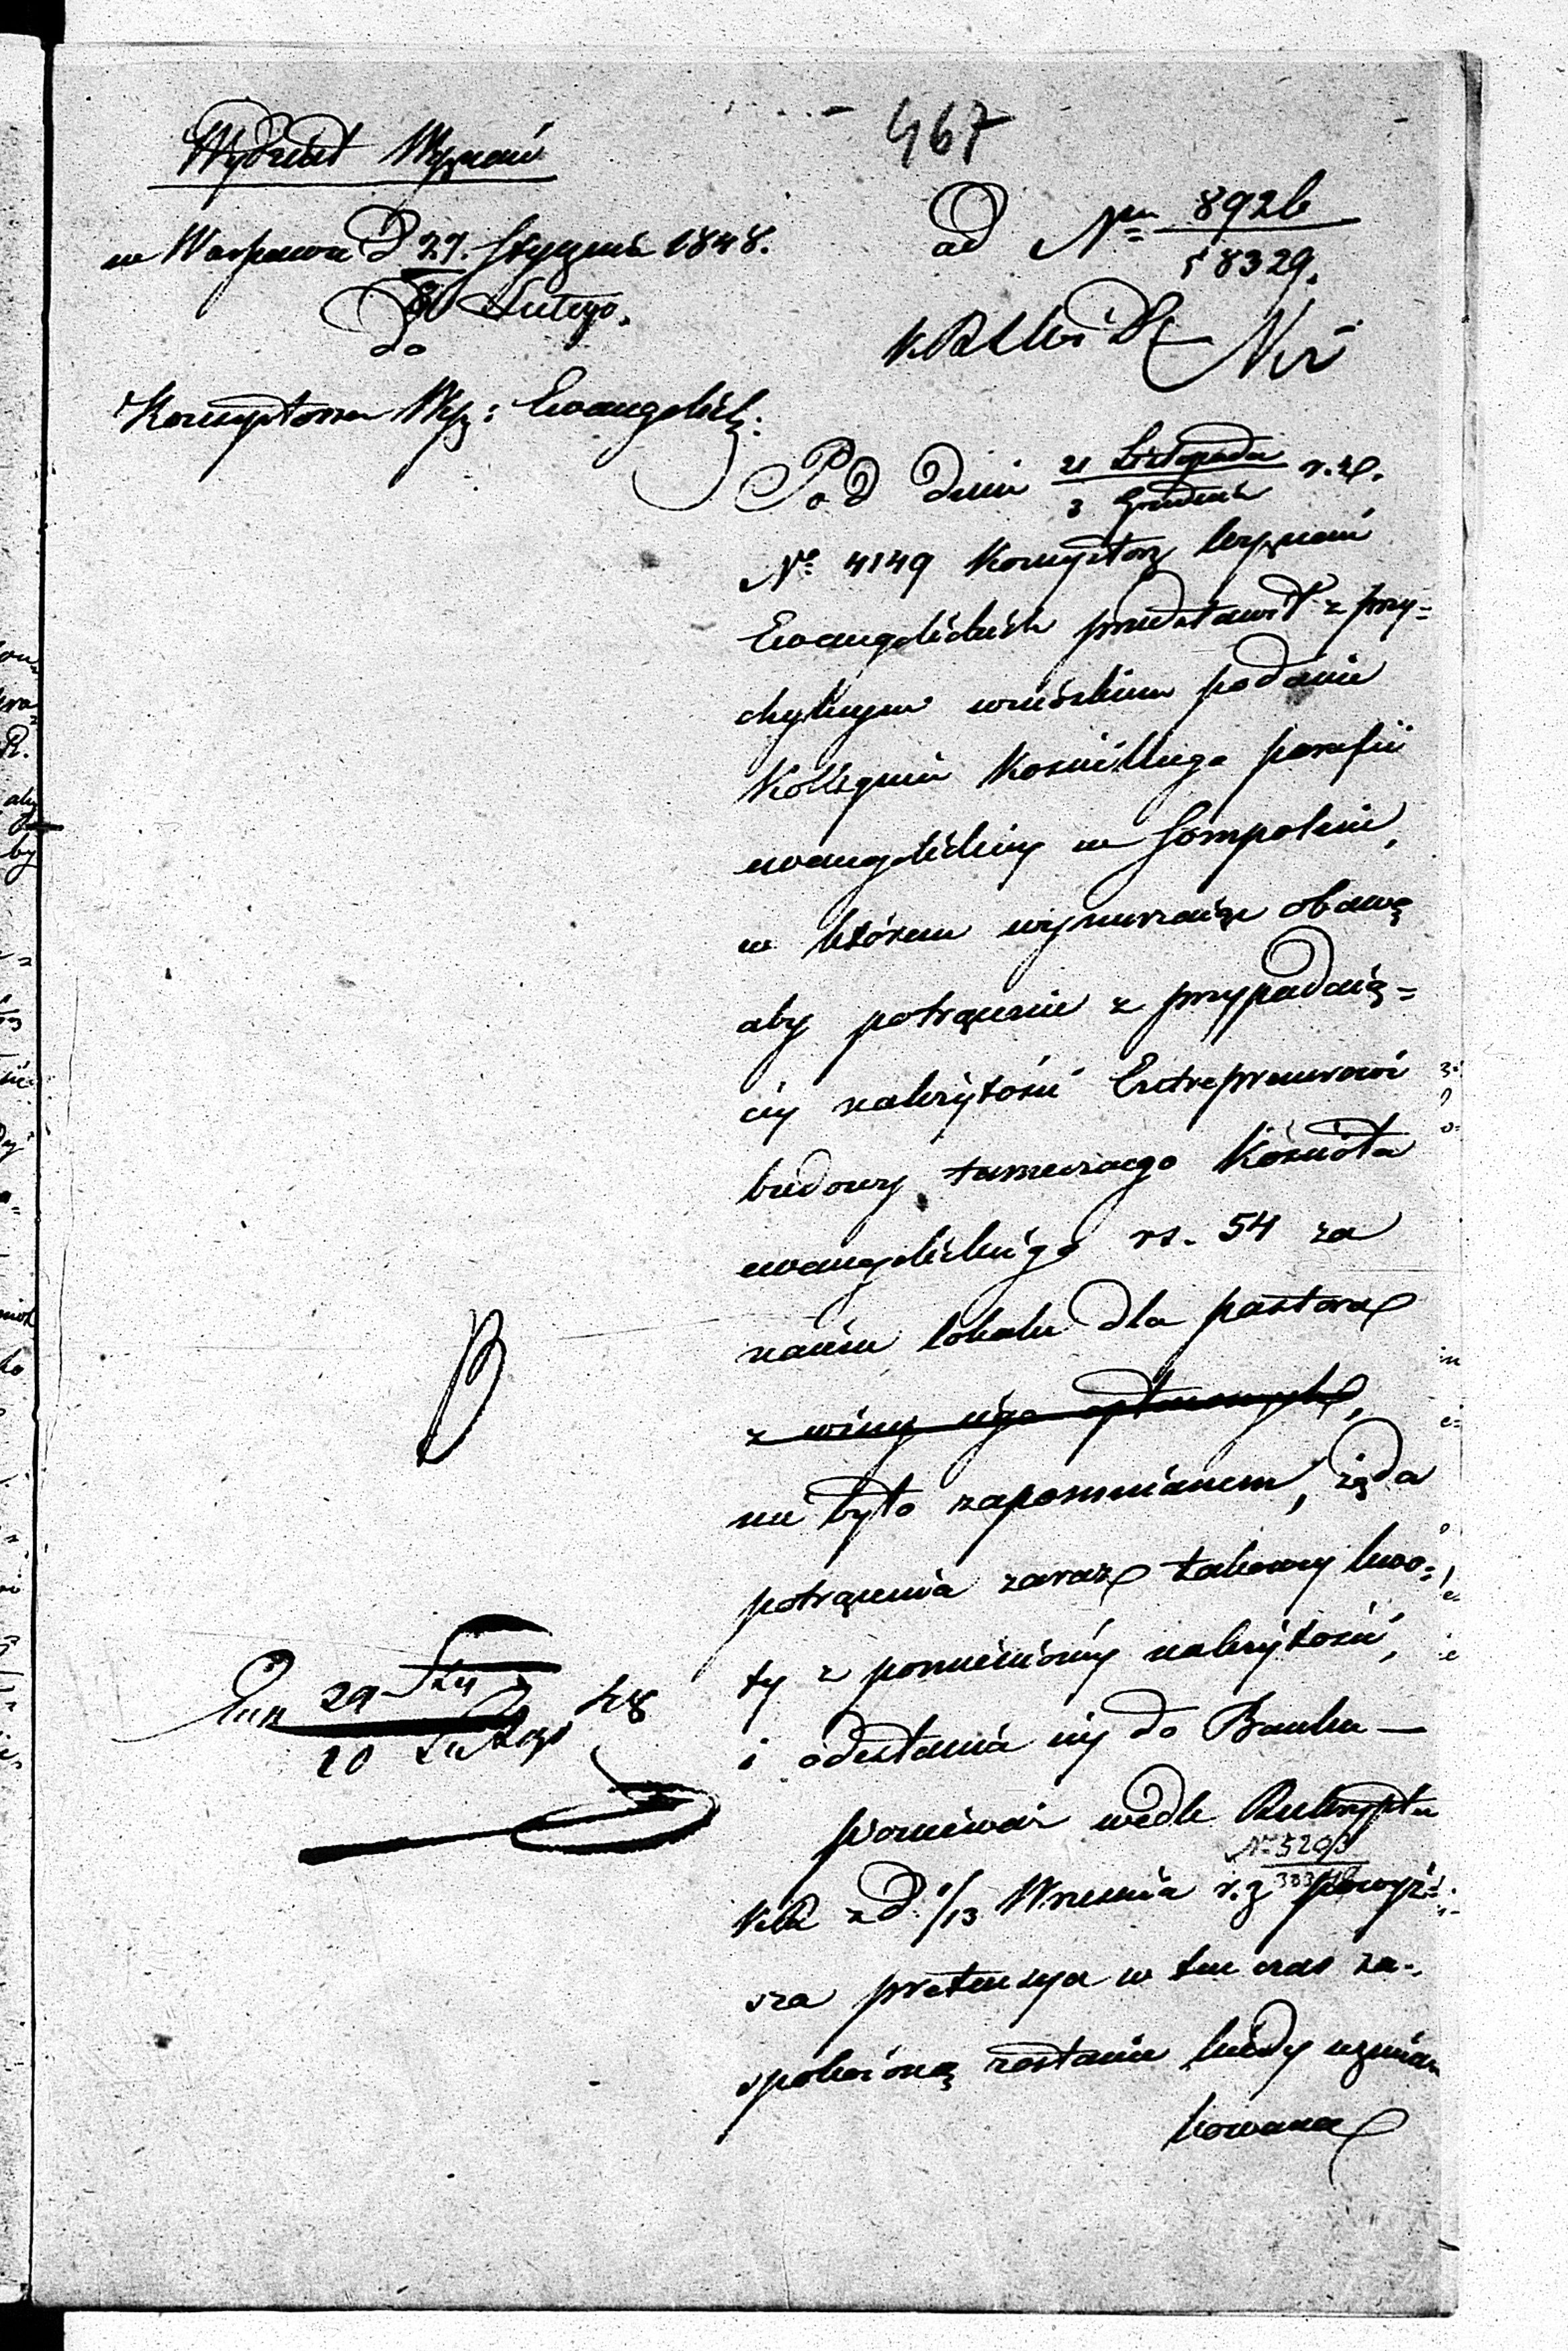 467
Wydział Wyznań
w Warszawie d 27. Stycznia 1848.
8 Lutego.
do
Konsystorza Wyz: Ewangelick:
ad Nr 8926
18329.
Pod dniem 21 Listopada r.z.
3 Grudnia
No 4149 Konsystorz Wyznań
Ewangelickich przedstawił z przy=
chylnym wnioskiem podanie
Kollegium Kościelnego parafii
ewangelickiej w Sompolnie,
w którem wynurzając obawę
aby potrącenie z przypadaią=
cej należytości Entreprenerowi
budowy tamecznego Kościoła
ewangelickiego rs. 54 za
naiem lokalu dla pastora
z winy iego
nie było zapomnianem, żąda
potrącenia zaraz takowej kwo=
ty z pomienioney należytości,
i odesłania iey do Banku —
ponieważ wedle Reskryptu
No 5293
z d. 1/13 Września r.z powyż=
sza pretensya w ten czas za=
spokoioną zostanie kiedy uzmiar
kowana
29 Sty 48
10 Lutego